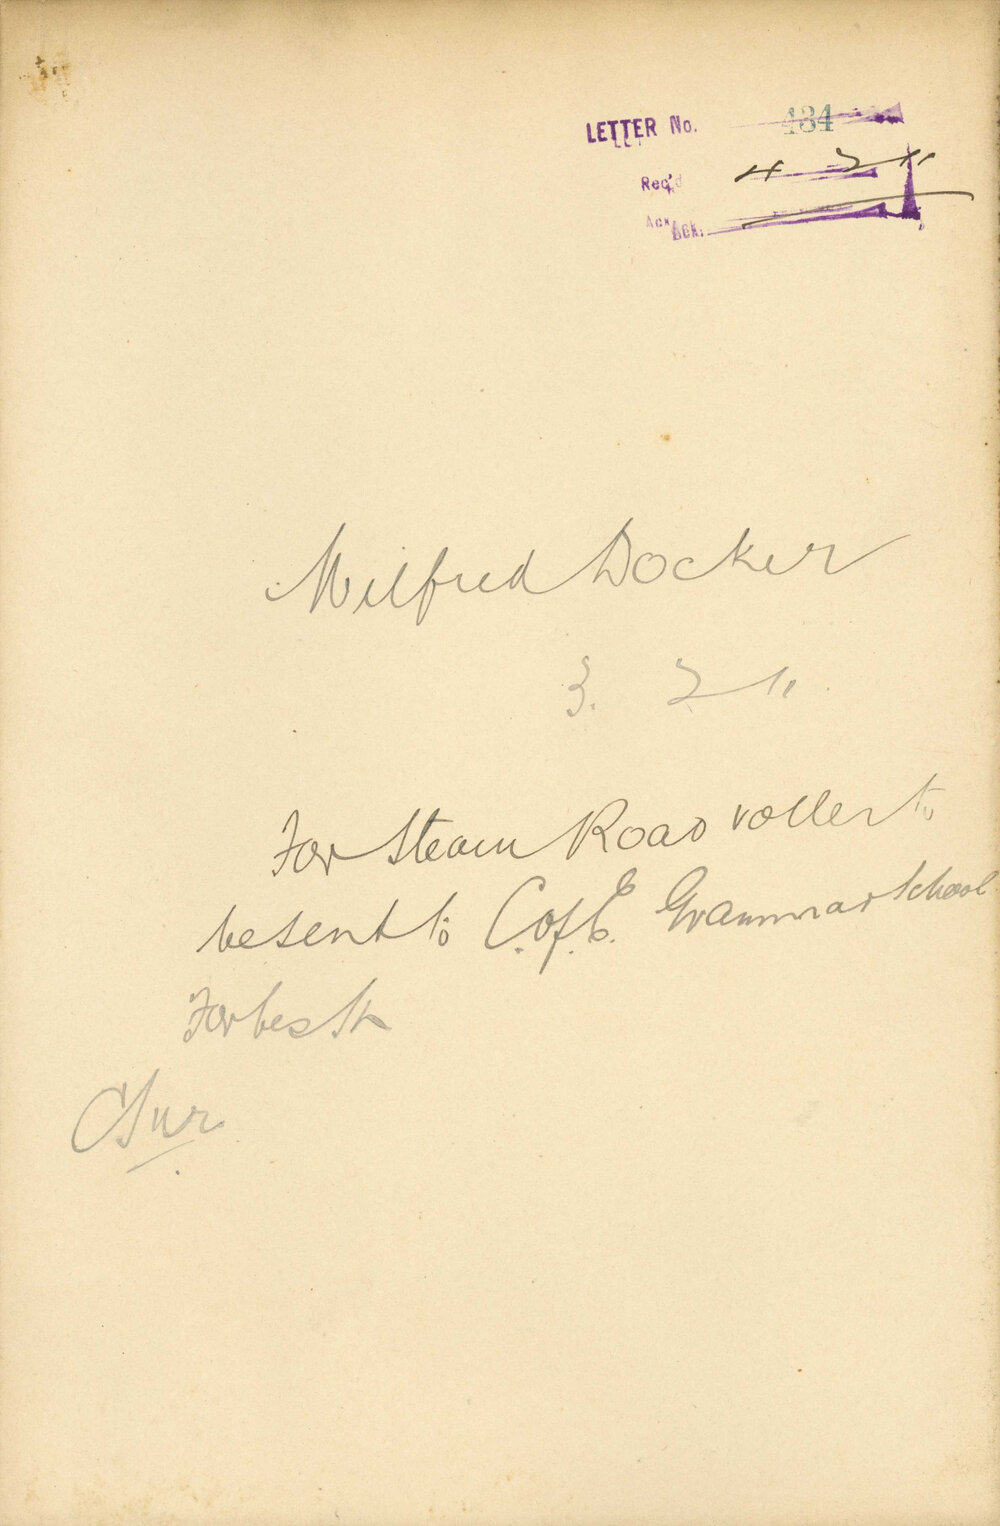 LETTER No. 434
Rec'd 4 2 11
Ack.
Wilfred Docker
3. 2 11.
For Steam Road roller to
be sent to C. of E. Grammar School
Forbes St